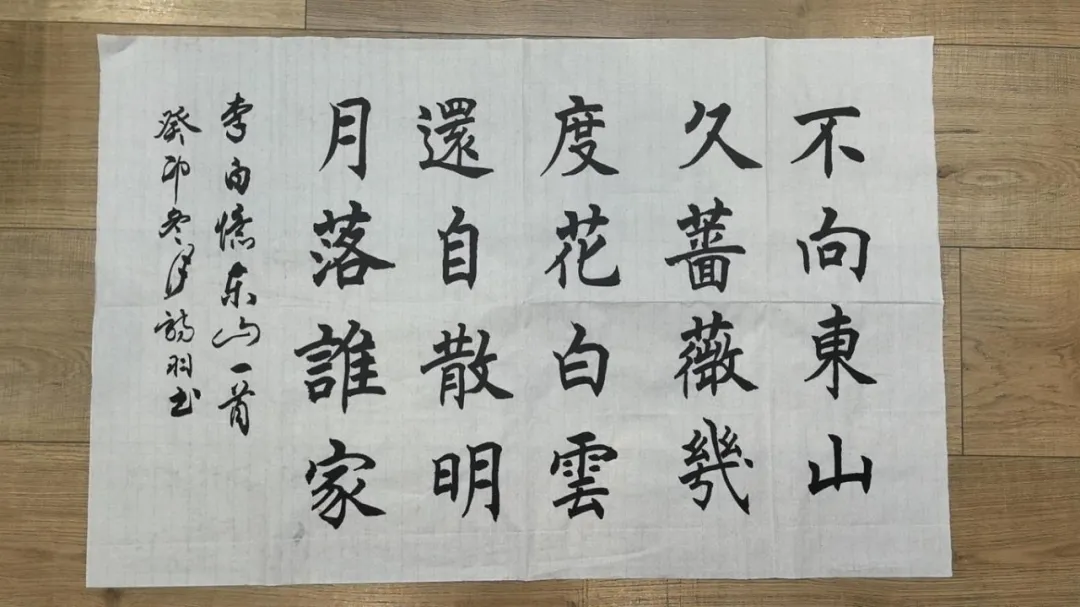 不向東山
久薔薇幾
度花白雲
還自散明
月落誰家
李白憶東山一首
癸卯冬月詩羽书